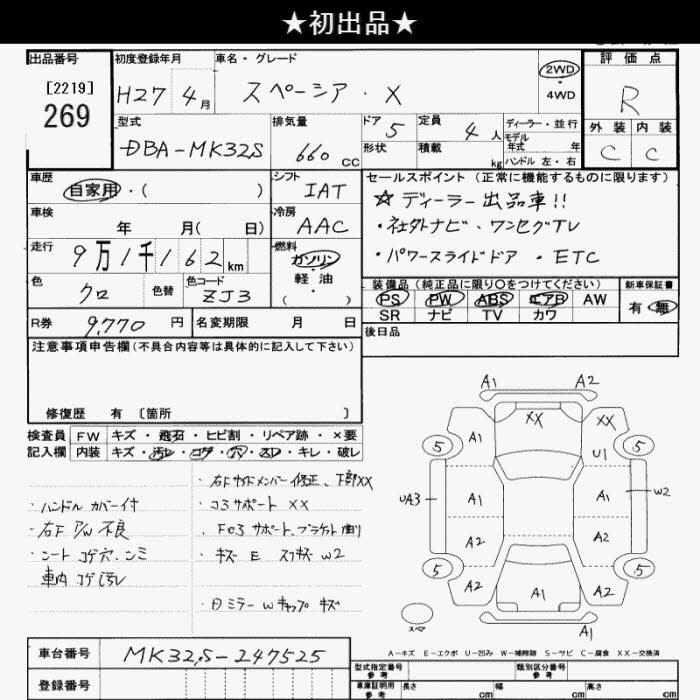 ★初出品★
出品番号
[2219]
269
初度登録年月
H27年 4月
車名・グレード
スペーシア・X
2WD
・
4WD
評価点
R
外装 内装
C C
型式
DBA-MK32S
排気量
660 cc
ドア 5
形状
定員 4 人
積載 kg
ディーラー・並行
モデル
年式 年
ハンドル 左・右
車歴
自家用・( )
シフト
IAT
セールスポイント (正常に機能するものに限ります)
☆ ディーラー出品車!!
・社外ナビ、ワンセグTV
・パワースライドドア・ETC
車検
年 月( 日)
冷房
AAC
走行
9万1千162 km
燃料
ガソリン
・
軽油
( )
色
クロ
色替
色コード
ZJ3
装備品 (純正品に限り○をつけてください)
PS PW ABS エアB AW
SR ナビ TV カワ
新車保証書
有・無
R券 9,770 円
名変期限 月 日
後日品
注意事項申告欄 (不具合内容等は具体的に記入して下さい)
修復歴 有 〔箇所 〕
検査員
記入欄
FW キズ・飛石・ヒビ割・リペア跡・×要
内装 キズ・汚レ・コゲ・穴・スレ・キレ・破レ
・ハンドルカバー付
・右F P/W 不良
・シート コゲ穴、シミ
車内 コゲ汚レ
・右Fサイドメンバー修正、下部XX
・コ3サポート XX
・Fコ3サポート、ブラケット曲り
・キズ E スリキズ W2
・日ミラーWキャップキズ
A1 A2
XX XX
A1 U1
5 5
UA3 A1 A1 W2
A2 A2
5 5
A2 A1 A2
A1
スペア
A-キズ E-エクボ U-凹み W-補修跡 S-サビ C-腐食 XX-交換済
車台番号 MK32S-247525
登録番号
型式指定番号
参考
類別区分番号
参考
車庫証明用
参考
長さ cm 幅 cm 高さ cm